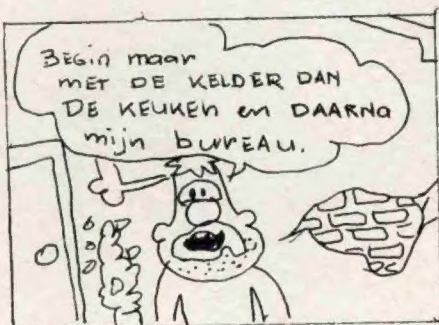 BEGin maar
MET DE KELDER DAN
DE KEUKEN en DAARNA
mijn bureau.